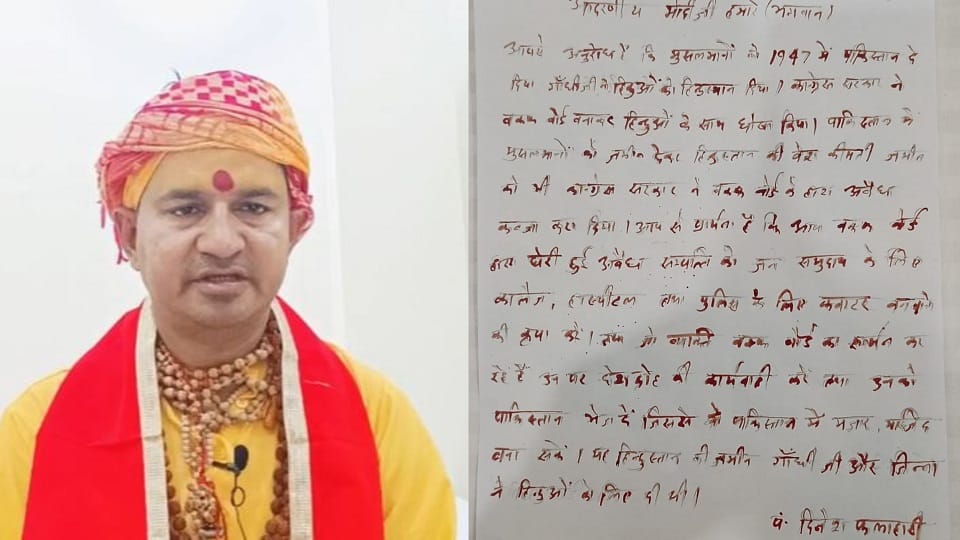 आदरणीय मोदी जी हमारे (भगवान)
आपसे अनुरोध है कि मुसलमानों को 1947 में पाकिस्तान दे
दिया गाँधी जी ने हिन्दुओं को हिन्दुस्थान दिया। कांग्रेस सरकार ने
वक्फ बोर्ड बनाकर हिन्दुओं के साथ धोखा किया। पाकिस्तान के
मुसलमानों को जमीन देकर हिन्दुस्तान की वेश कीमती जमीन
को भी कांग्रेस सरकार ने वक्फ बोर्ड के द्वारा अवैध
कब्जा करा दिया। आप से प्रार्थना है कि आप वक्फ बोर्ड
द्वारा घेरी हुई अवैध सम्पत्ति को जन समुदाय के लिए
कालेज, हास्पीटल तथा पुलिस के लिए क्वाटर बनवाने
की कृपा करें। तथा जो व्यक्ति वक्फ बोर्ड का समर्थन कर
रहे हैं उन पर देशद्रोह की कार्यवाही करें तथा उनको
पाकिस्तान भेज दें जिससे वे पाकिस्तान में मजार, मस्जिद
बना सकें। यह हिन्दुस्तान की जमीन गाँधी जी और जिन्ना
ने हिन्दुओं के लिए दी थी।
पं. दिनेश फलाहारी